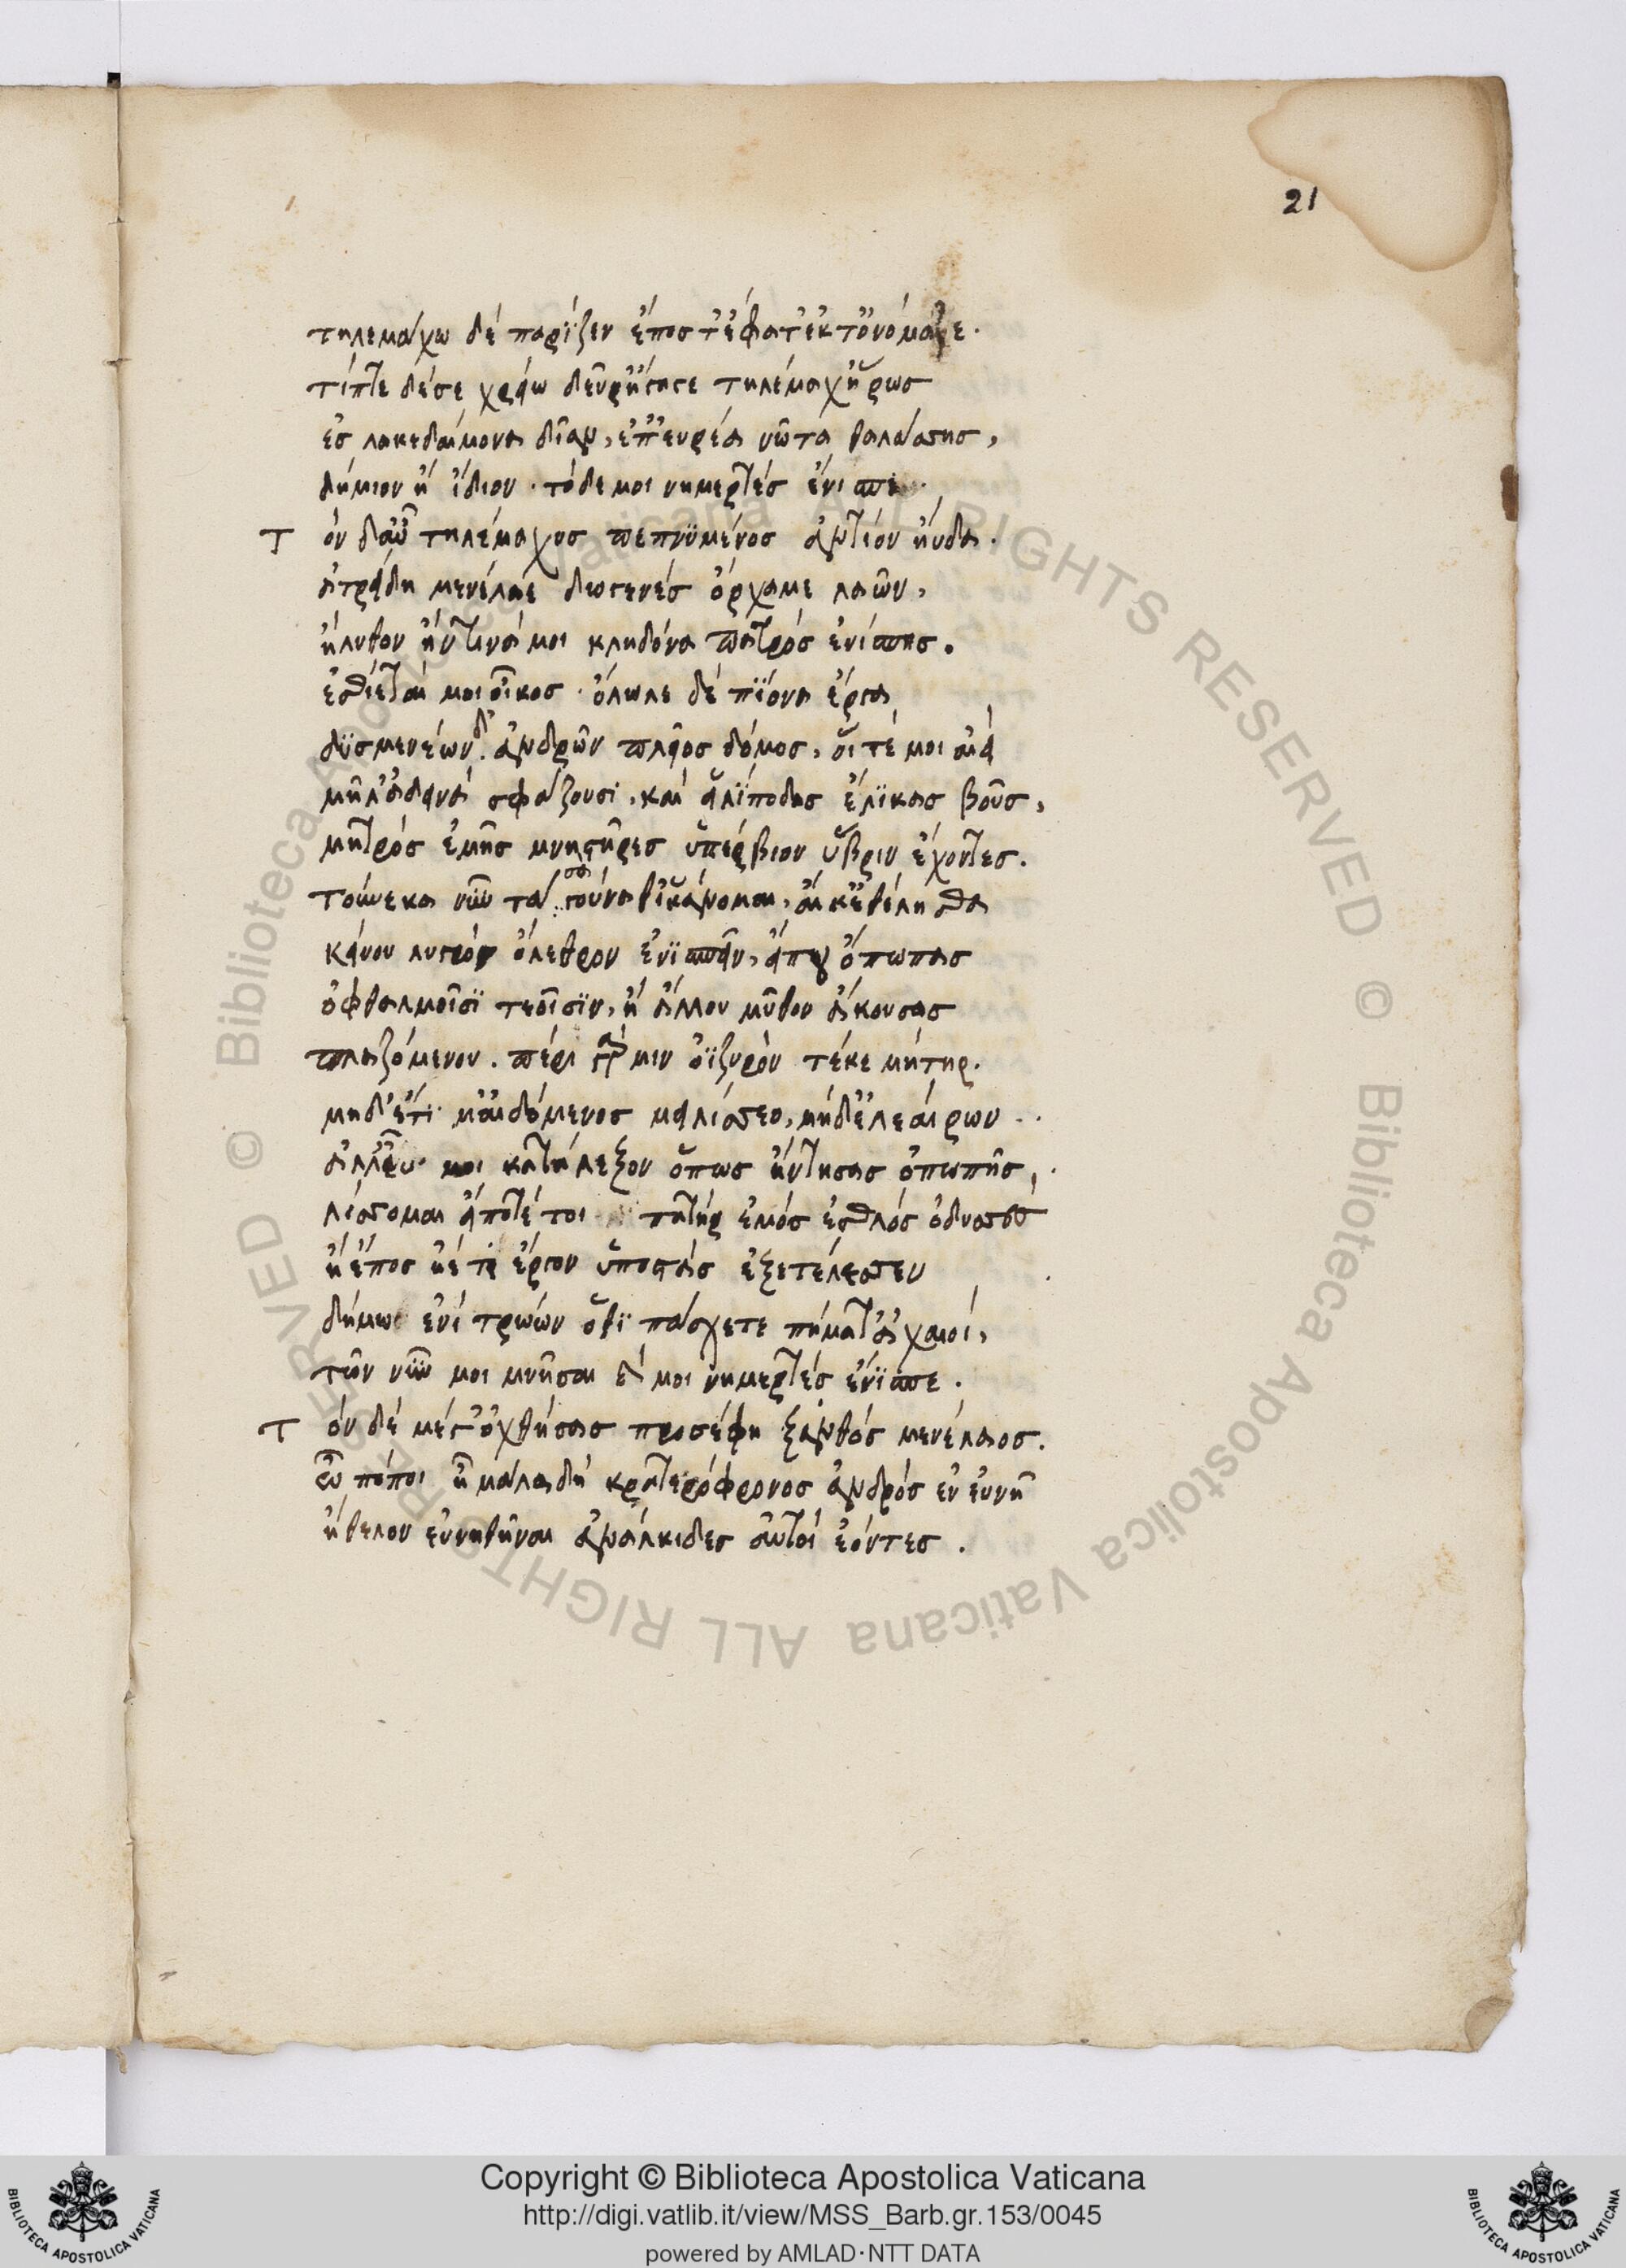 21
τηλεμάχω δὲ παρΐζεν ἔποσ τ' ἔφατ' ἔκ τ' ὀνόμαζε.
τίπτε δέ σε χρειὼ δεῦρ' ἤγαγε τηλέμαχ' ἥρωσ
ἐσ λακεδαίμονα δῖαν, ἐπ' εὐρέα νῶτα θαλάσσησ,
δήμιον ἢ ἴδιον. τόδε μοι νημερτὲσ ἐνι σπε.
Τ ὸν δ' αὖ τηλέμαχοσ πεπνϋμένοσ ἀντίον ηὔδα.
ἀτρείδη μενέλαε διοτρεφὲσ ὄρχαμε λαῶν,
ἤλυθον ἥντινά μοι κληδόνα πατρὸσ ἐνίσπησ.
ἐσθίεταί μοι οἶκοσ. ὄλωλε δὲ πΐονα ἔργα
δϋσμενέων δ' ἀνδρῶν πλεῖοσ δόμοσ, οἵ τέ μοι αἰεὶ
μῆλ' ἀδινὰ σφάζουσι, καὶ εἰλΐποδασ ἕλϊκασ βοῦσ,
μητρὸσ ἐμῆσ μνηστῆρεσ ὑπέρβιον ὕβριν ἔχοντεσ.
τοὔνεκα νῦν τὰ σὰ γούναθ' ἱκάνομαι, αἴ κ' ἐθέλησθα
κείνου λυγρὸν ὄλεθρον ἐνϊσπεῖν, εἴ που ὄπωπασ
ὀφθαλμοῖσϊ τεοῖσϊν, ἢ ἄλλου μῦθον ἄκουσασ
πλαζόμενου. πέρι γάρ μιν ὀϊζυρὸν τέκε μήτηρ.
μηδ' ἔτι μ' αἰδόμενοσ μειλίσσεο, μηδ' ἐλεαίρων.
ἀλλ' εὖ μοι κατάλεξον ὅπωσ ἤντησασ ὀπωπῆσ,
λίσσομαι εἴ ποτέ τοι πατὴρ ἐμὸσ ἐσθλὸσ ὀδυσσεὺσ
ἢ ἔποσ ἠέ τι ἔργον ὑποστὰσ ἐξετέλεσσεν
δήμω ἐνὶ τρώων ὅθϊ πάσχετε πήματ' ἀχαιοί,
τῶν νῦν μοι μνῆσαι καί μοι νημερτὲσ ἐνϊσπε.
Τ ὸν δὲ μέγ' ὀχθήσασ προσέφη ξανθὸσ μενέλαοσ.
ὢ πόποι ἦ μάλα δὴ κρατερόφρονοσ ἀνδρὸσ ἐν εὐνῆ
ἤθελον εὐνηθῆναι ἀνάλκιδεσ αὐτοὶ ἐόντεσ.
© Biblioteca Apostolica Vaticana ALL RIGHTS RESERVED © Biblioteca Apostolica Vaticana ALL RIGHTS RESERVED
Copyright © Biblioteca Apostolica Vaticana
http://digi.vatlib.it/view/MSS_Barb.gr.153/0045
powered by AMLAD·NTT DATA
BIBLIOTECA APOSTOLICA VATICANA
BIBLIOTECA APOSTOLICA VATICANA